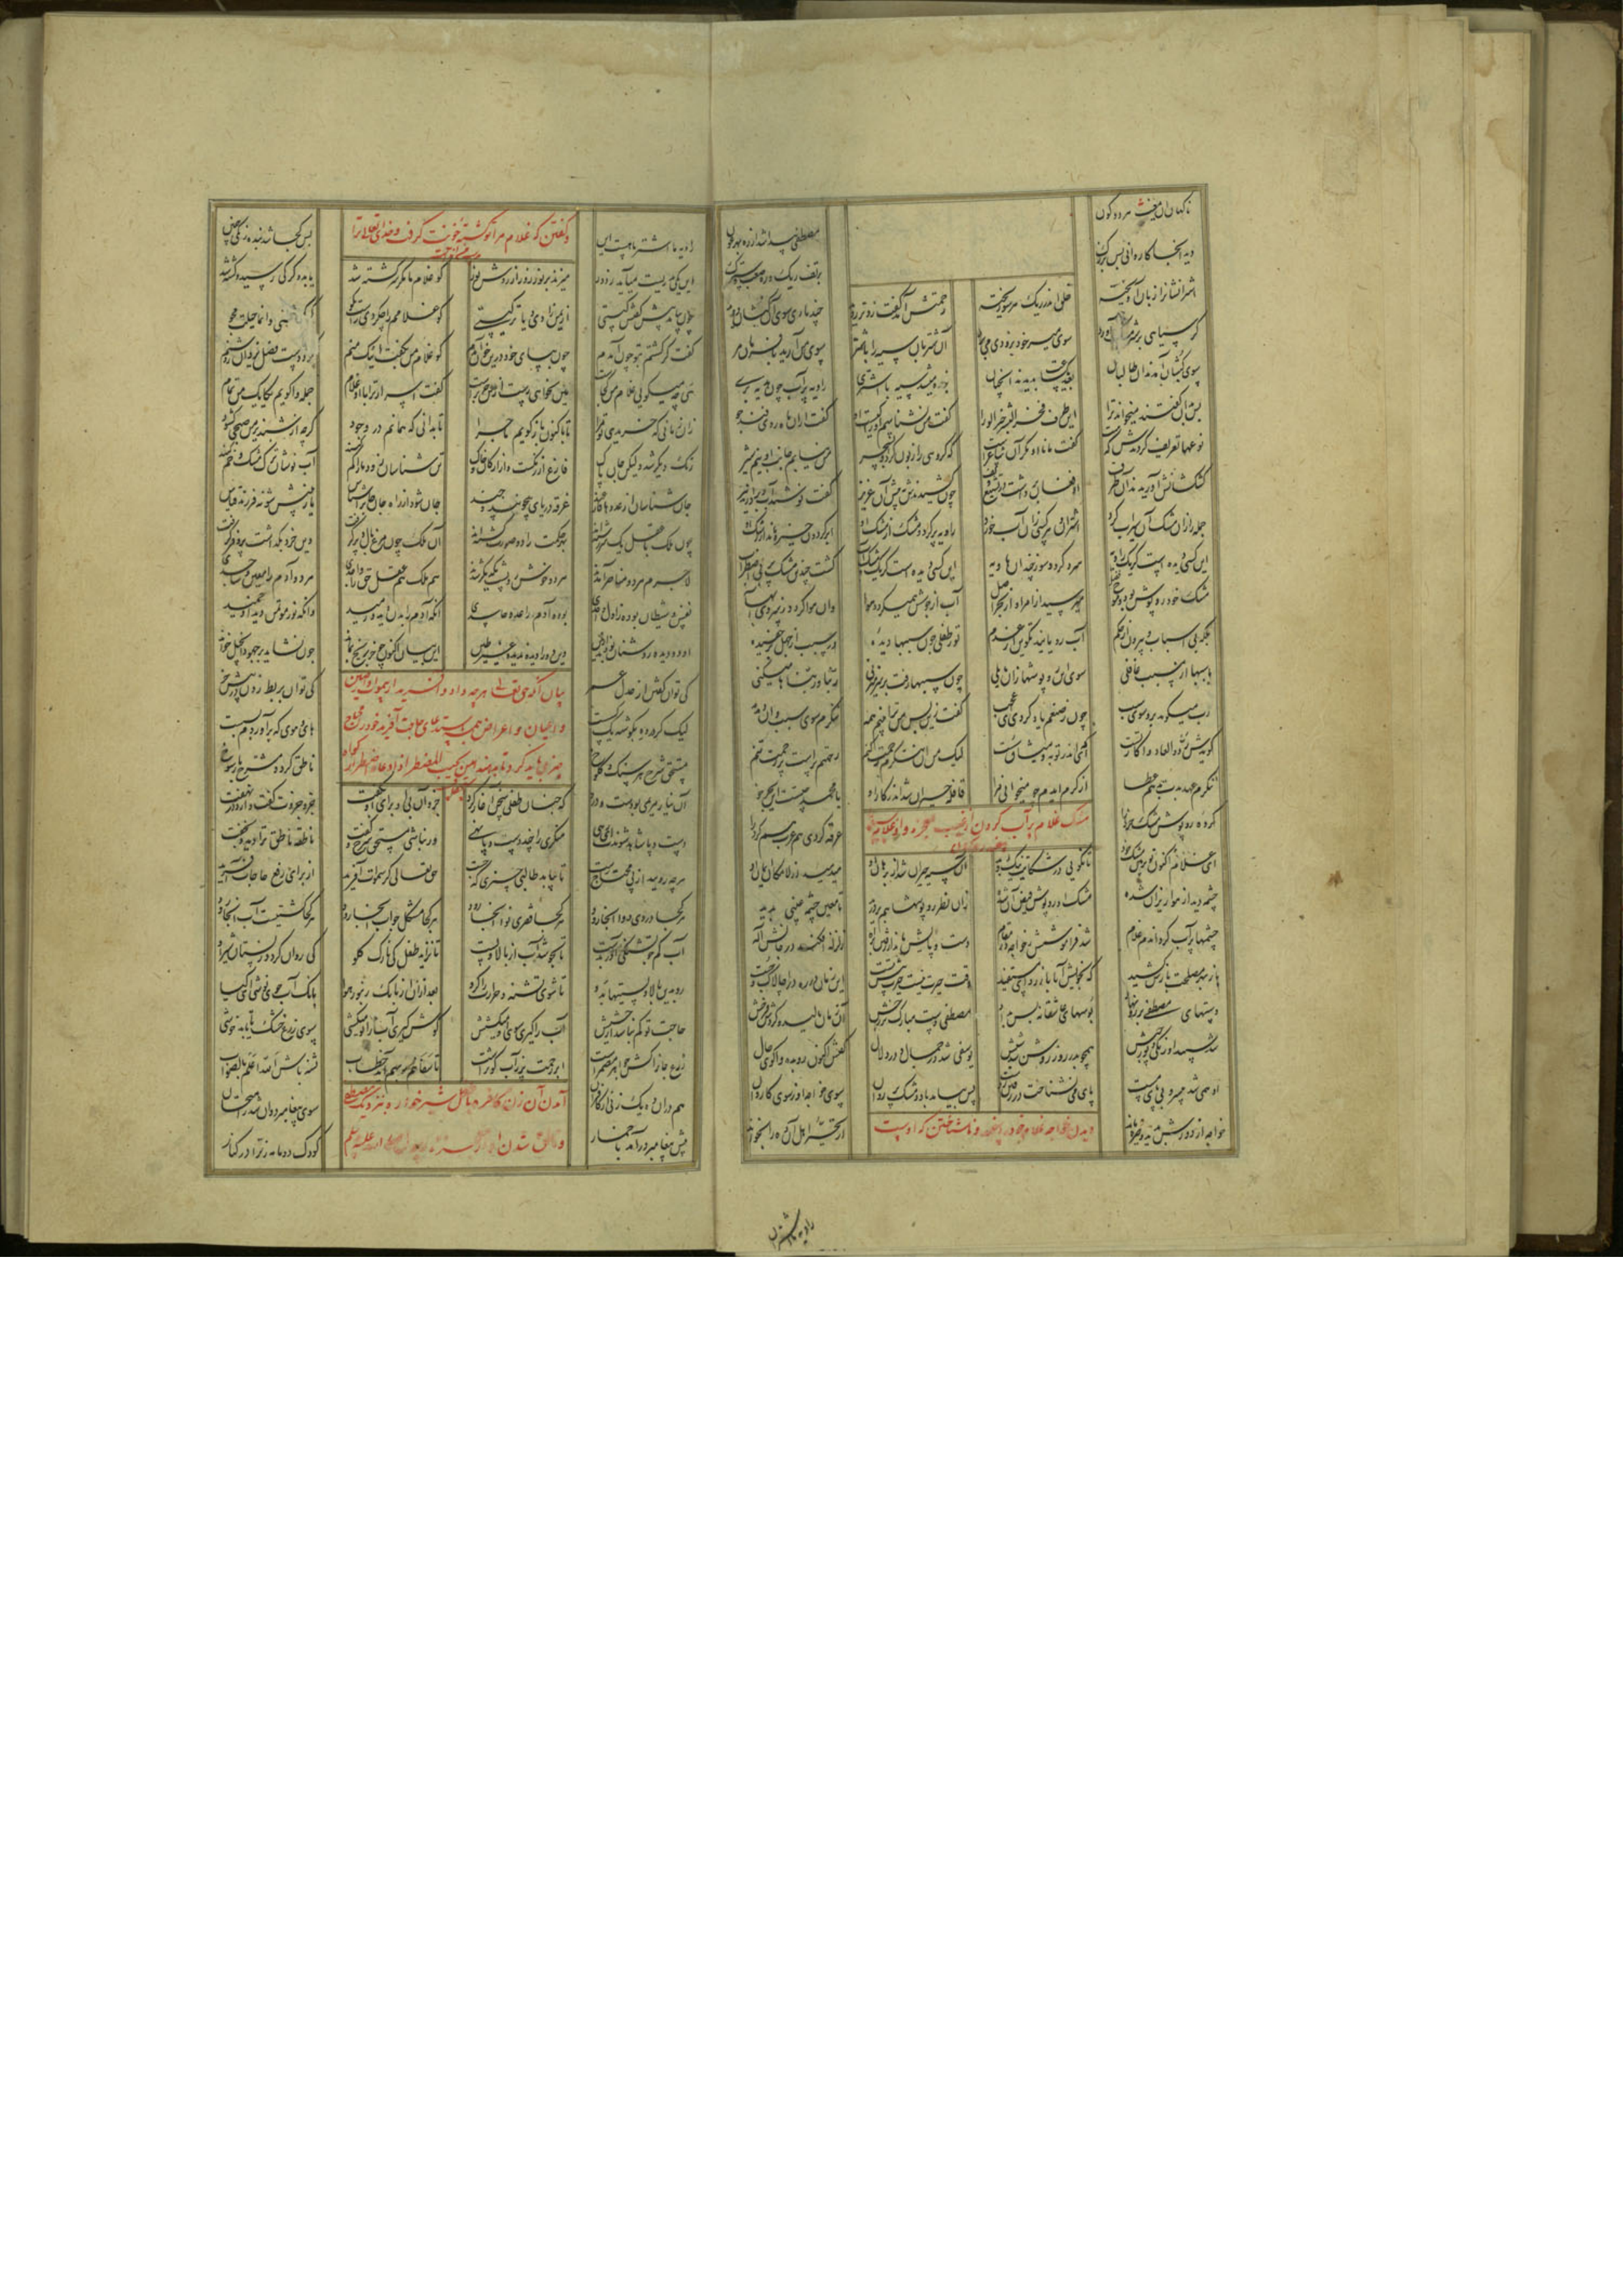 ناگهان آن مغیث هر دو کون
مصطفی پیدا شد از ره بهر عون
دید آنجا کاروانی بس بزرگ
بر تف ریک و ره صعب و سترک
اشترانشانرا زبان آویخته
خلق اندر ریک هر سو ریخته
رحمتش آمد گفت زوتر روید
چند یاری سوی آن کثبان دوید
گر سیاهی بر شتر مشک آورد
سوی میر خود بزودی می‌برد
آن شتربان سیه را با شتر
سوی من آرید با فرمان مر
سوی کثبان آمدند آن طالبان
بعد یکساعت بدیدند آنچنان
بنده میشد سیه با اشتری
راویه پر آب چون هدیه بری
پس بدان گفتند میخواند ترا
این طرف فخر البشر خیر الورا
گفت من نشناسم او را کیست او
گفت آن ماه روی قند خو
نوعها تعریف کردندش که هست
گفت مانا او مگر آن شاعرست
که گروهی را زبون کرد او بسحر
من نیایم جانب او نیم شبر
کش کشانش آوریدند آن طرف
او فغان برداشت در تشنیع و تف
چون کشیدندش به پیش آن عزیز
گفت نوشید آب و بردارید نیز
جمله را زان مشک آن سیراب کرد
اشتران و هر کسی زان آب خورد
راویه پر کرد و مشک از مشک او
ابر گردون خیره ماند از رشک او
این کسی دیده است کز یک راویه
سرد گردد سوز چندان هاویه
این کسی دیده است کز یک مشک آب
گشت چندین مشک پر بی اضطراب
مشک خود روپوش بود و موج فضل
میرسید از امر او از بحر اصل
آب از جوشش همیگردد هوا
وان هوا گردد ز سردی آبها
بلکه بی اسباب و بیرون زین حکم
آب رویانید تکوین از عدم
تو ز طفلی چون سببها دیده
در سبب از جهل بر چفسیده
با سببها از مسبب غافلی
سوی این روپوشها زان مایلی
چون سببها رفت بر سر میزنی
ربنا و ربناها میکنی
رب میگوید برو سوی سبب
چون ز صنعم یاد کردی ای عجب
گفت زین پس من ترا بینم همه
ننگرم سوی سبب و آن دمدمه
گویدش ردوا لعادوا کار تست
ای تو اندر توبه و میثاق سست
لیک من آن ننگرم رحمت کنم
رحمتم پرست بر رحمت تنم
ننگرم عهد بدت بدهم عطا
از کرم ایندم چو میخوانی مرا
قافله حیران شد اندر کار او
یا محمد چیست این ای بحر خو
مشک غلام پر آب کردن از غیب بمعجزه و آن غلام سیاه
کرده روپوش مشک خرد را
غرقه کردی هم عرب هم کرد را
ای غلام اکنون تو پر بین مشک خود
تا نگویی در شکایت نیک و بد
آن سیه حیران شد از برهان او
میدمید از لامکان ایمان او
چشمه دید از هوا ریزان شده
مشک او روپوش فیض آن شده
زان نظر روپوشها هم بر درید
تا معین چشمه غیبی بدید
چشمها پر آب کرد آندم غلام
شد فراموشش ز خواجه وز مقام
دست و پایش ماند از رفتن براه
زلزله افکند در جانش اله
باز بهر مصلحت بازش کشید
که بخویش آ باز رو ای مستفید
وقت حیرت نیست حیرت پیش تست
این زمان در ره در آ چالاک و چست
دستهای مصطفی بر رو نهاد
بوسهای عاشقانه بس بداد
مصطفی دست مبارک بر رخش
آن زمان مالید و کرد او فرخش
شد سپید آن زنگی و پور حبش
همچو بدر و روز روشن شد شبش
یوسفی شد در جمال و در دلال
گفتش اکنون رو بده واگوی حال
او همی شد بی سر و بی پای مست
پای می نشناخت در رفتن ز دست
پس بیامد با دو مشک پر روان
سوی خواجه از سوی کاروان
خواجه از دورش بدید و خیره ماند
از تحیر اهل آن ده را بخواند
دیدن خواجه غلام خود را سپید و ناشناختن که اوست
راویه ما اشتر ما هست این
پس کجا شد بنده زنگی جبین
و گفتن که غلام مرا تو کشته خونت گرفت و خدای تعالی ترا
این یکی بدریست میآید ز دور
میزند بر نور روز از روش نور
کو غلام ما مگر سرگشته شد
یا بدو گرگی رسید و کشته شد
چون بیامد پیش گفتش کیستی
از یمن زادی و یا ترکیستی
کو غلامم را چه کردی راست گو
گر بکشتی وانما حیلت مجو
گفت گر کشتم بتو چون آمدم
چون بپای خود درین خون آمدم
کو غلام من بگفت اینک منم
کرد دست فضل یزدان روشنم
هی چه میگویی غلام من کجاست
هین نخواهی رست از من جز براست
گفت اسرار ترا با آن غلام
جمله واگویم یکایک من تمام
زان زمانی که خریدی تو مرا
تا باکنون بازگویم ماجرا
تا بدانی که همانم در وجود
گرچه از شبدیز من صبحی گشود
رنگ دیگر شد ولیکن جان پاک
فارغ از رنگست و از ارکان خاک
تن شناسان زود ما را گم کنند
آب نوشان ترک مشک و خم کنند
جان شناسان از عددها فارغند
غرقه دریای بیچونند و چند
جان شو و از راه جان جان را شناس
یار بینش شو نه فرزند قیاس
چون ملک با عقل یک سررشته‌اند
بهر حکمت را دو صورت گشته‌اند
آن ملک چون مرغ بال و پر گرفت
وین خرد بگذاشت پر و فر گرفت
لاجرم هر دو مناصر آمدند
هر دو خوش رو پشت یکدیگر شدند
هم ملک هم عقل حق را واجدی
هر دو آدم را معین و ساجدی
نفس و شیطان بوده ز اول واحدی
بوده آدم را عدو و حاسدی
آنکه آدم را بدن دید او رمید
وانکه نور مؤتمن دید او خمید
آن دو دیده روشنان بودند ازین
وین دو را دیده ندیده غیر طین
این بیان اکنون چو خر بر یخ بماند
چون نشاید بر جهود انجیل خواند
کی توان با شیعه گفتن از عمر
کی توان بربط زدن در پیش کر
بیان آنکه حق تعالی هر چه داد و آفرید از سموات و ارضین
و اعیان و اعراض همه باستدعای حاجت آفرید خود را محتاج
چیزی باید کرد تا بدهد امن یجیب المضطر اذا دعاه اضطرار گواه
لیک گر در ده بگوشه یک کسست
های هویی که برآوردم بسست
مستحق شرح را سنگ و کلوخ
ناطقی گردد مشرح با رسوخ
آن نیاز مریمی بودست و درد
که چنان طفلی سخن آغاز کرد
جزو او بی او برای او بگفت
جزو جزوت گفت دارد در نهفت
دست و پا شاهد شوندت ای رهی
منکری را چند دست و پا نهی
ور نباشی مستحق شرح و گفت
ناطقه ناطق ترا دید و بخفت
هر چه رویید از پی محتاج رست
تا بیابد طالبی چیزی که جست
حق تعالی گر سموات آفرید
از برای رفع حاجات آفرید
هر کجا دردی دوا آنجا رود
هر کجا فقری نوا آنجا رود
هر کجا مشکل جواب آنجا رود
هر کجا کشتیست آب آنجا رود
آب کم جو تشنگی آور بدست
تا بجوشد آب از بالا و پست
تا نزاید طفلک نازک گلو
کی روان گردد ز پستان شیر او
رو بدین بالا و پستیها بدو
تا شوی تشنه و حرارت را گرو
بعد از آن از بانگ زنبور هوا
بانگ آب جوی نوشی ای کیا
حاجت تو کم نباشد از حشیش
آب را گیری سوی او میکشیش
گوش گیری آب را تو میکشی
سوی زرع خشک تا یابد خوشی
زرع جان را کش جواهر مضمرست
ابر رحمت پر ز آب کوثرست
تا سقاهم ربهم آید خطاب
تشنه باش الله اعلم بالصواب
آمدن آن زن کافر با طفل شیرخواره بنزدیک مصطفی
هم از آن ده یک زنی از کافران
سوی پیغامبر دوان شد ز امتحان
پیش پیغامبر درآمد با خمار
کودک دو ماهه زن را در کنار
راویه اشتر